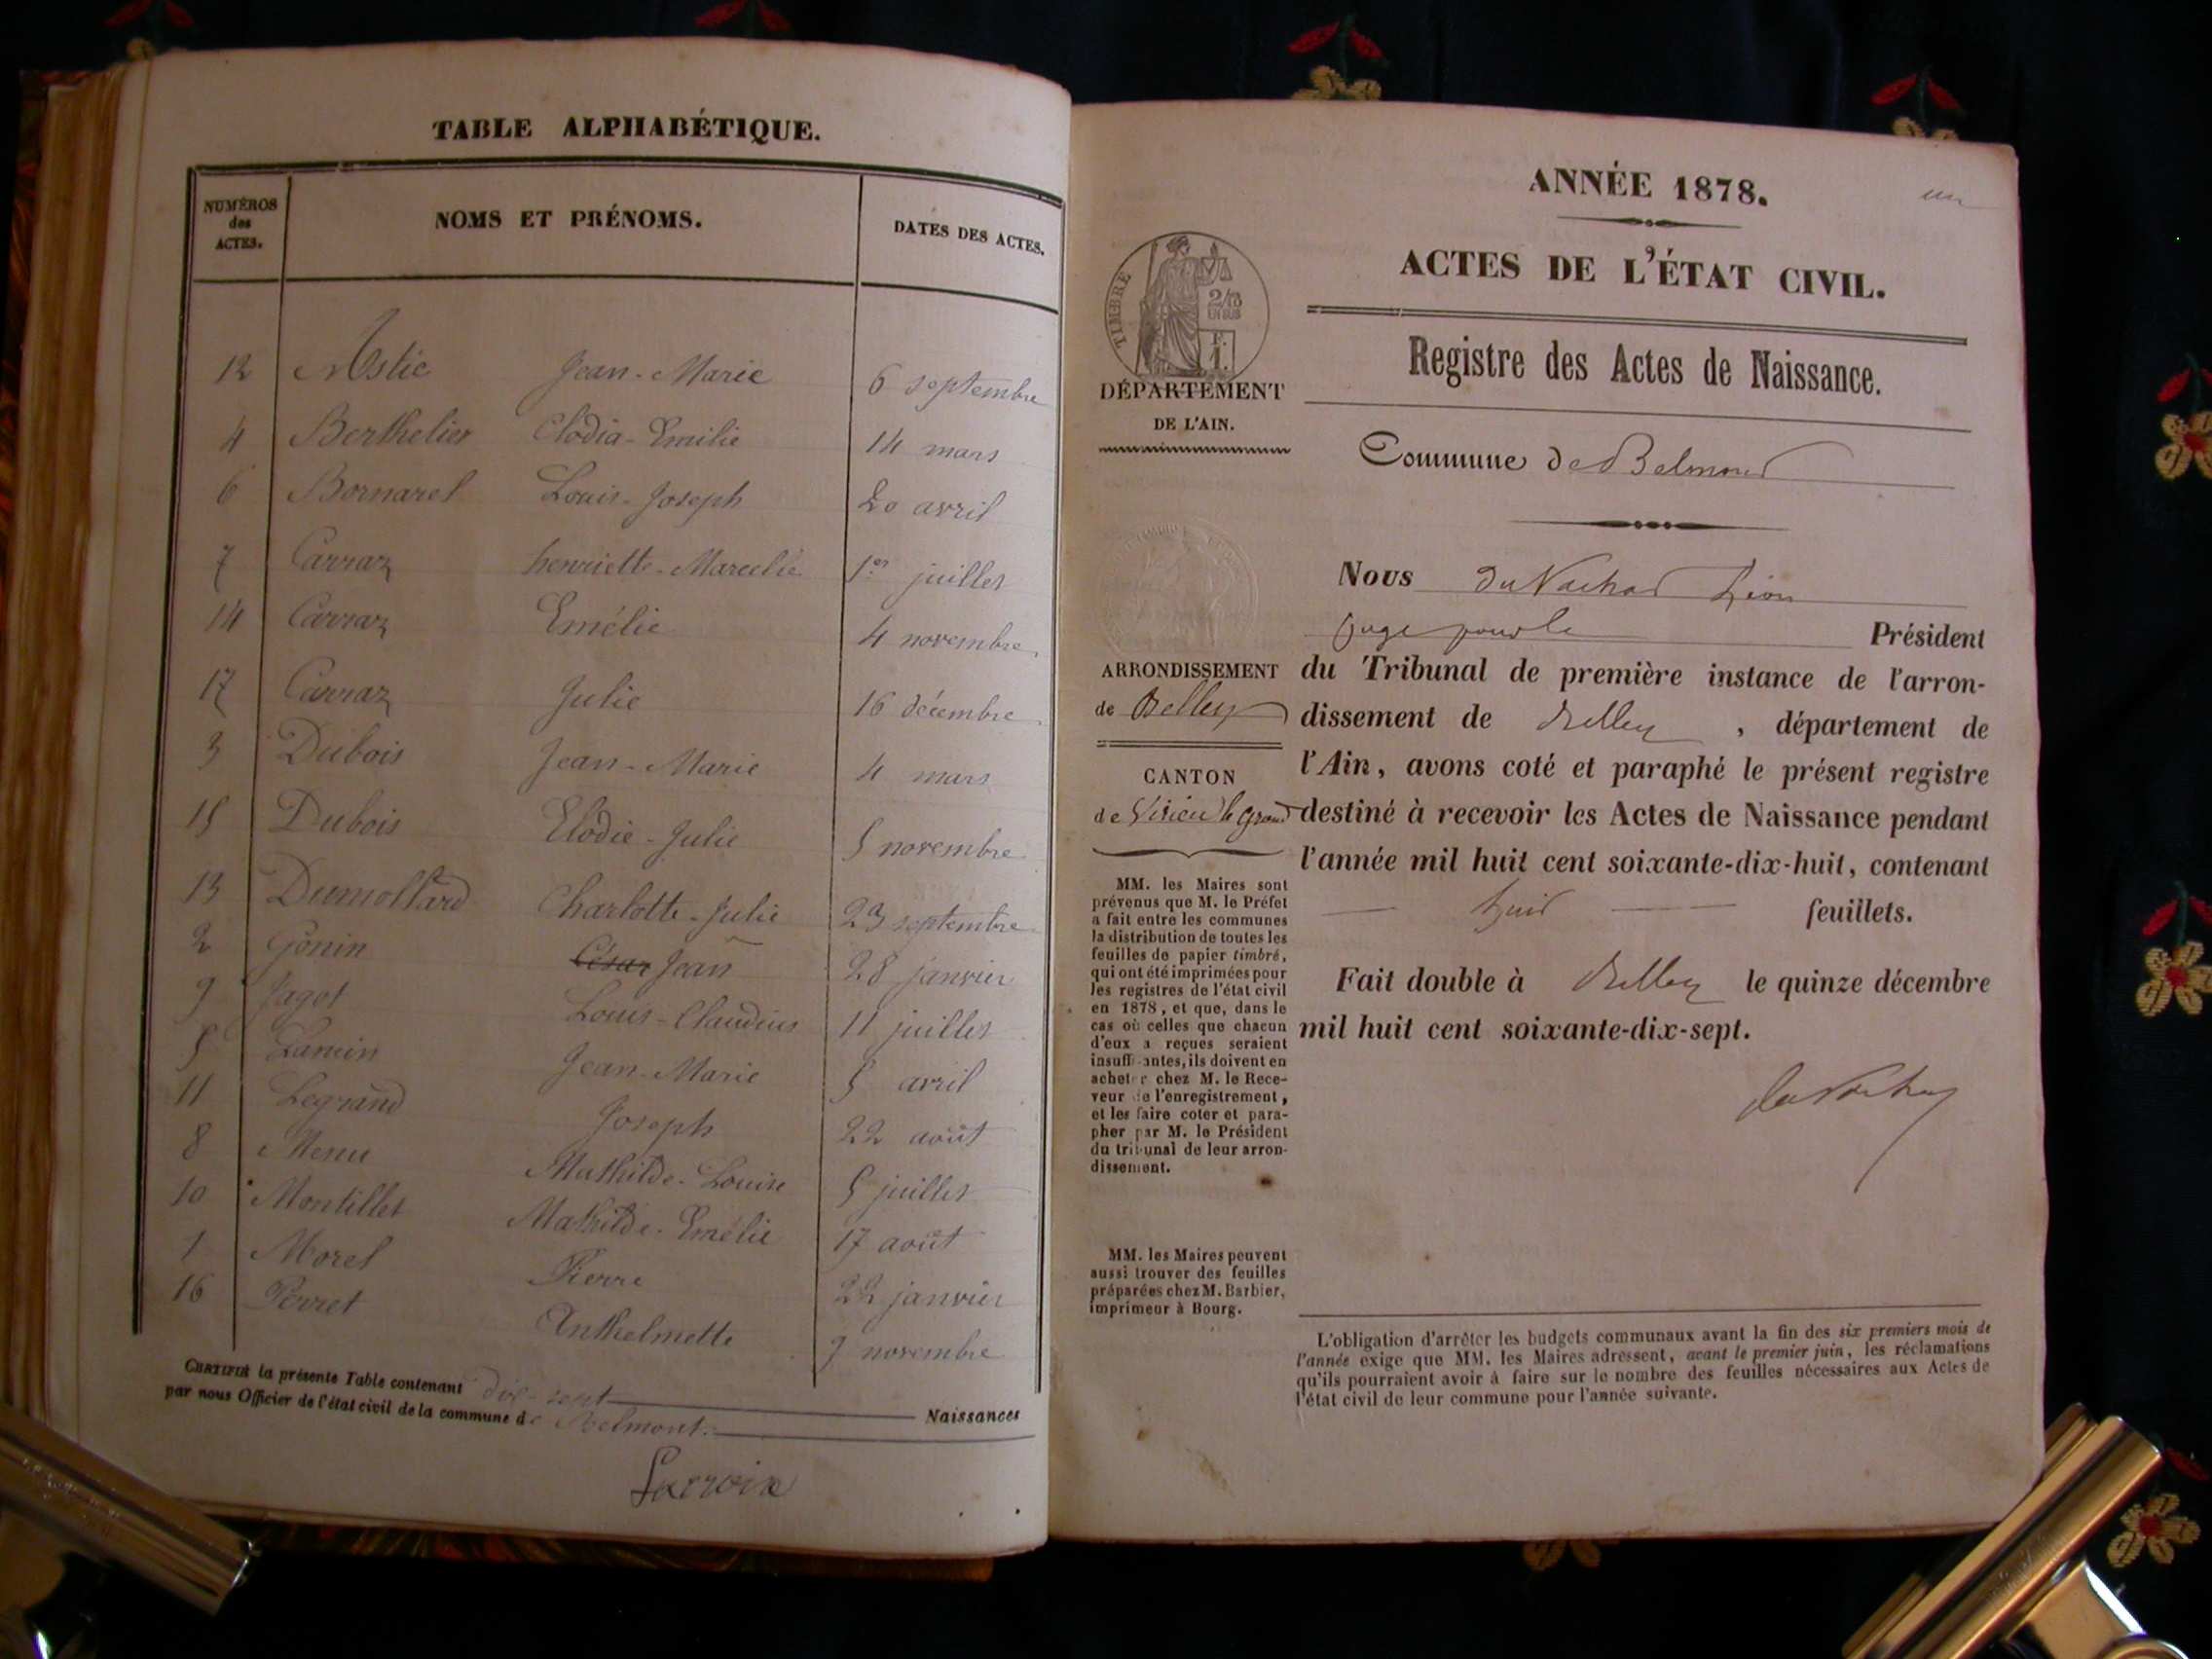 TABLE ALPHABÉTIQUE.
NUMÉROS
des
ACTES.
NOMS ET PRÉNOMS.
DATES DES ACTES.
12 Astic Jean-Marie 6 septembre
4 Berthelier Clodia-Emilie 14 mars
6 Bornarel Louis-Joseph 20 avril
7 Carraz henriette-Marcelie 1er juillet
14 Carraz Emélie 4 novembre
17 Carraz Julie 16 décembre
3 Dubois Jean-Marie 4 mars
15 Dubois Elodie-Julie 5 novembre
13 Dumollard Charlotte-Julie 23 septembre
2 Gonin César Jean 28 janvier
9 Jagot Louis-Claudius 11 juillet
5 Jean-Marie 5 avril
11 Legrand Joseph 22 août
8 Menu Mathilde-Louise 5 juillet
10 Montillet Mathilde-Emélie 17 août
1 Morel Pierre 22 janvier
16 Perret Anthelmette 9 novembre
CERTIFIÉ la présente Table contenant dix-sept Naissances
par nous Officier de l'état civil de la commune de Belmont.
Lacroix
un
ANNÉE 1878.
ACTES DE L'ÉTAT CIVIL.
Registre des Actes de Naissance.
TIMBRE
2/10
EN SUS
F.
1.
DÉPARTEMENT
DE L'AIN.
Commune de Belmont
Nous Léon
Juge pour le Président
du Tribunal de première instance de l'arron-
dissement de Belley , département de
l'Ain, avons coté et paraphé le présent registre
destiné à recevoir les Actes de Naissance pendant
l'année mil huit cent soixante-dix-huit, contenant
huit feuillets.
Fait double à Belley le quinze décembre
mil huit cent soixante-dix-sept.
ARRONDISSEMENT
de Belley
CANTON
de Virieu le Grand
MM. les Maires sont
prévenus que M. le Préfet
a fait entre les communes
la distribution de toutes les
feuilles de papier timbré,
qui ont été imprimées pour
les registres de l'état civil
en 1878, et que, dans le
cas où celles que chacun
d'eux a reçues seraient
insuffisantes, ils doivent en
acheter chez M. le Rece-
veur de l'enregistrement,
et les faire coter et para-
pher par M. le Président
du tribunal de leur arron-
dissement.
MM. les Maires peuvent
aussi trouver des feuilles
préparées chez M. Barbier,
imprimeur à Bourg.
L'obligation d'arrêter les budgets communaux avant la fin des six premiers mois de
l'année exige que MM. les Maires adressent, avant le premier juin, les réclamations
qu'ils pourraient avoir à faire sur le nombre des feuilles nécessaires aux Actes de
l'état civil de leur commune pour l'année suivante.